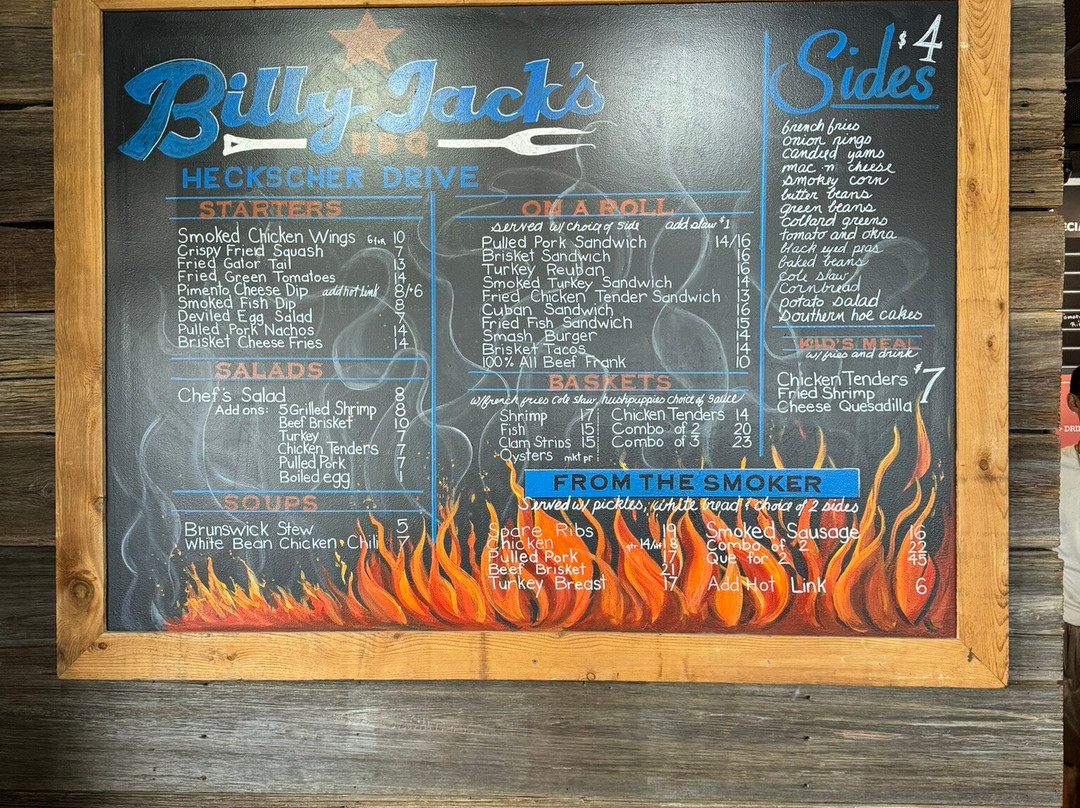 Billy Jack's
BBQ
HECKSCHER DRIVE
STARTERS
Smoked Chicken Wings 6 for 10
Crispy Fried Squash 7
Fried Gator Tail 13
Fried Green Tomatoes 14
Pimento Cheese Dip add hot link 8/+6
Smoked Fish Dip 8
Deviled Egg Salad 7
Pulled Pork Nachos 14
Brisket Cheese Fries 14
SALADS
Chef's Salad 8
Add ons: 5 Grilled Shrimp 8
Beef Brisket 10
Turkey 7
Chicken Tenders 7
Pulled Pork 7
Boiled egg 1
SOUPS
Brunswick Stew 5
White Bean Chicken Chili 7
ON A ROLL
served w/ choice of side add slaw $1
Pulled Pork Sandwich 14/16
Brisket Sandwich 16
Turkey Reuban 16
Smoked Turkey Sandwich 14
Fried Chicken Tender Sandwich 13
Cuban Sandwich 16
Fried Fish Sandwich 15
Smash Burger 14
Brisket Tacos 14
100% All Beef Frank 10
BASKETS
w/french fries cole slaw, hushpuppies choice of sauce
Shrimp 17 Chicken Tenders 14
Fish 15 Combo of 2 20
Clam Strips 15 Combo of 3 23
Oysters mkt pr
FROM THE SMOKER
Served w/ pickles, white bread & choice of 2 sides
Spare Ribs 19 Smoked Sausage 16
Chicken Combo of 2 22
Pulled Pork 17 Que for 2 45
Beef Brisket 21
Turkey Breast 17 Add Hot Link 6
Sides $4
french fries
onion rings
candied yams
mac n' cheese
smokey corn
butter beans
green beans
collard greens
tomato and okra
black eyed peas
baked beans
cole slaw
cornbread
potato salad
southern hoe cakes
KID'S MEAL
w/ fries and drink
Chicken Tenders $7
Fried Shrimp
Cheese Quesadilla